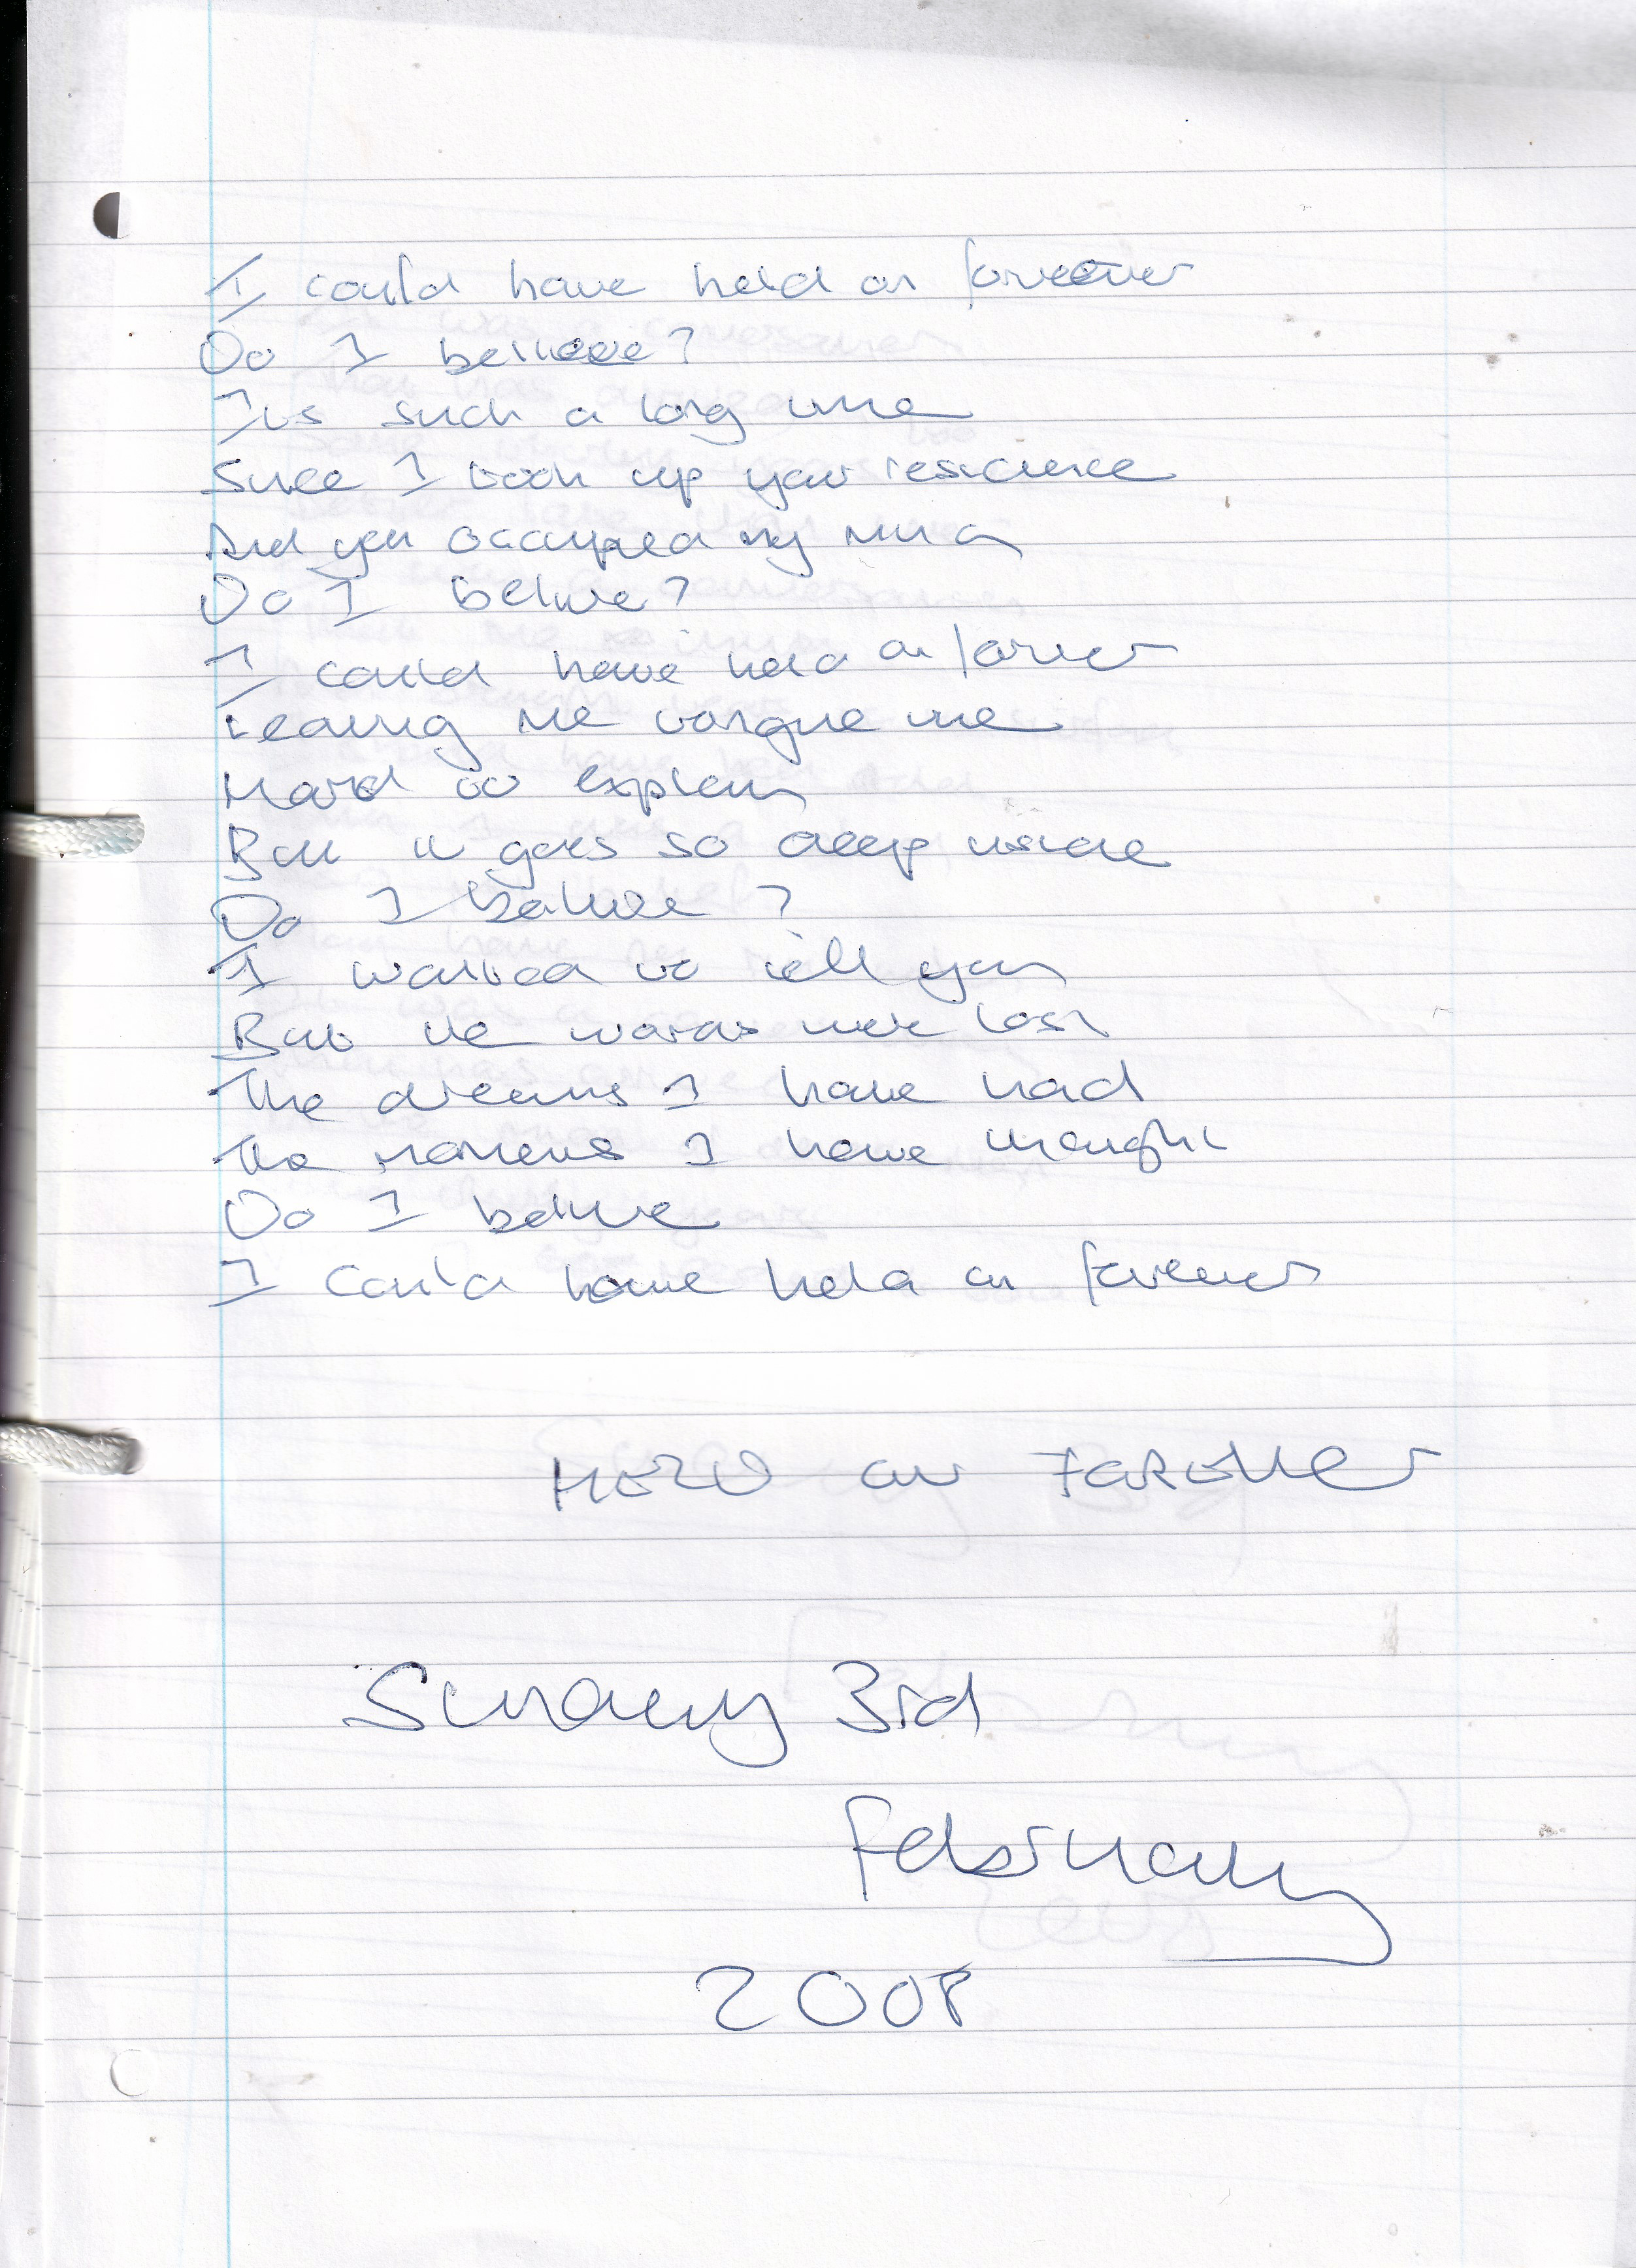 I could have held on forever
Do I believe?
Its such a long time
Since I took up your residence
And you occupied my mind
Do I believe?
I could have held on forever
Leaving me tongue tie
Hard to explain
But it goes so deep inside
Do I believe?
I wanted to tell you
But the words were lost
The dreams I have had
The moments I have thought
Do I believe
I could have held on forever
HOLD ON FOREVER
Sunday 3rd
February
2008